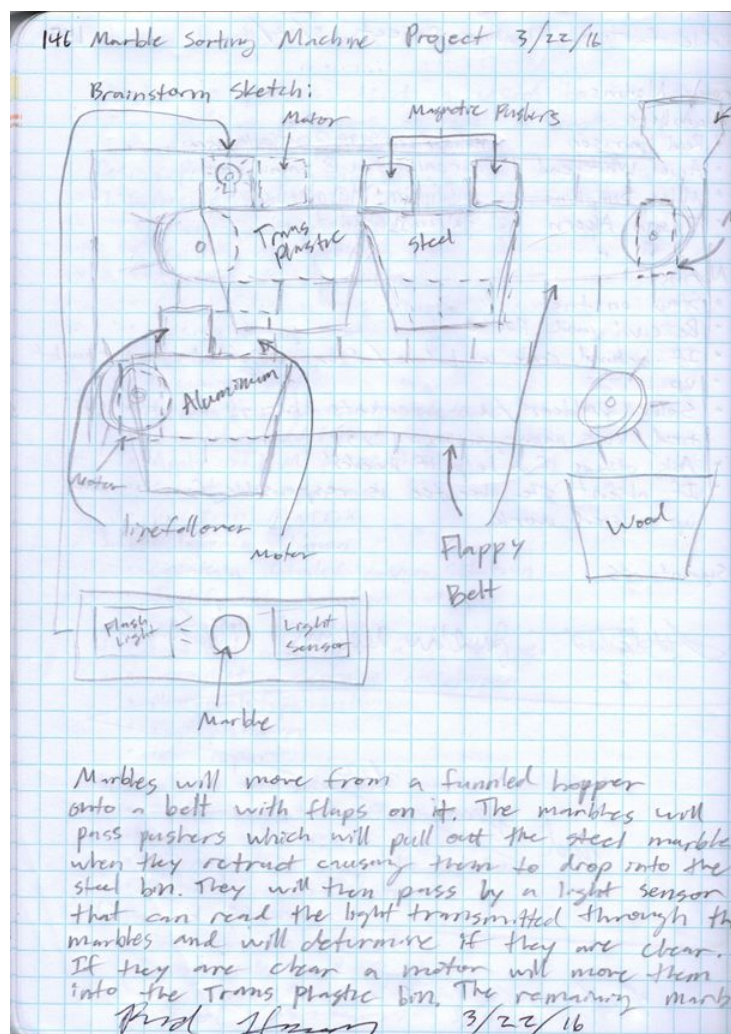 146 Marble Sorting Machine Project 3/22/16
Brainstorm Sketch:
Motor
Magnetic Pushers
Trans
Plastic
Steel
Aluminum
Motor
linefollower
Motor
Flappy
Belt
Wood
Flash
Light
Light
Sensor
Marble
Marbles will move from a funnled hopper
onto a belt with flaps on it. The marbles will
pass pushers which will pull out the steel marble
when they retract causing them to drop into the
steel bin. They will then pass by a light sensor
that can read the light transmitted through th
marbles and will determine if they are clear.
If they are clear a motor will move them
into the Trans Plastic bin. The remaining marb
3/22/16